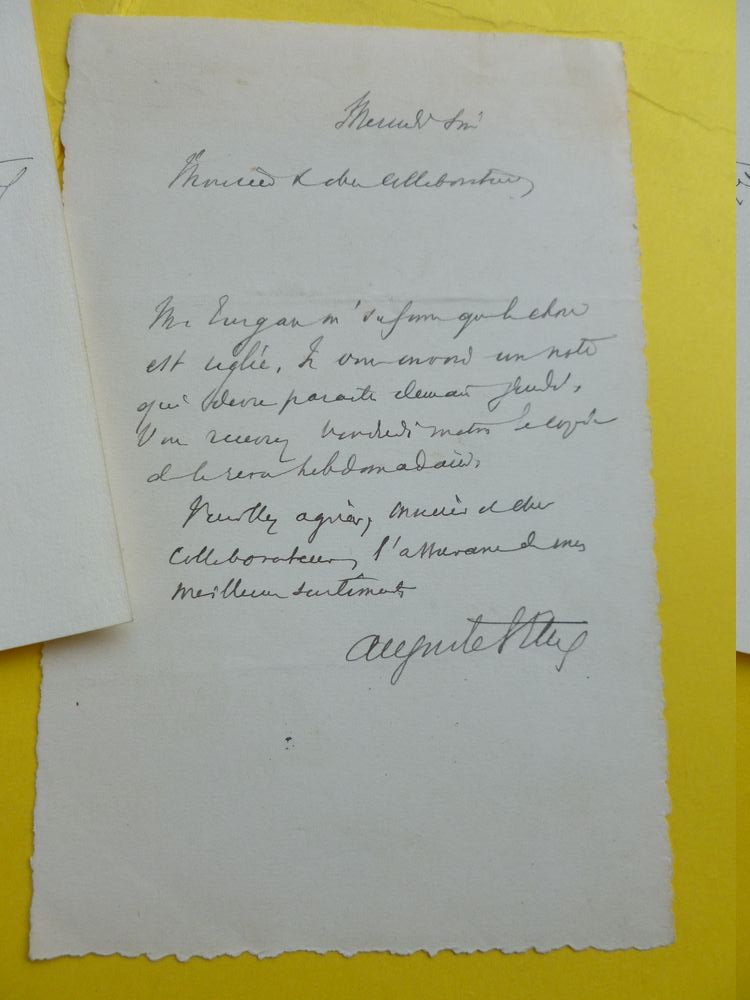 Mercredi soir
Monsieur & cher Collaborateur,
Mr Turgan m'informe que la chose
est réglée. Je vous envoie une note
qui devra paraître demain jeudi.
Vous recevrez Vendredi matin la copie
de la revue hebdomadaire.
Veuillez agréer, Monsieur et cher
Collaborateur, l'assurance de mes
meilleurs sentiments
Auguste